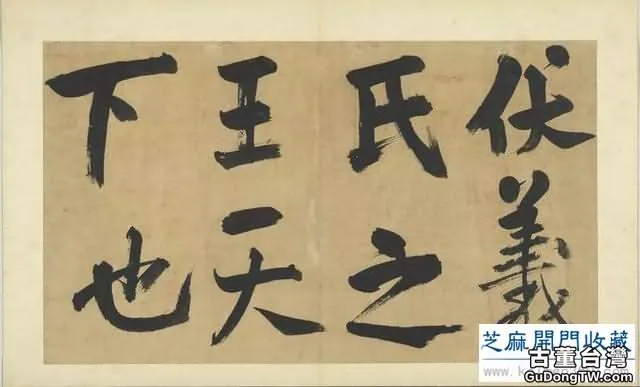 伏羲
氏之
王天
下也
芝麻開門收藏
古董台灣
GuDongTW.com